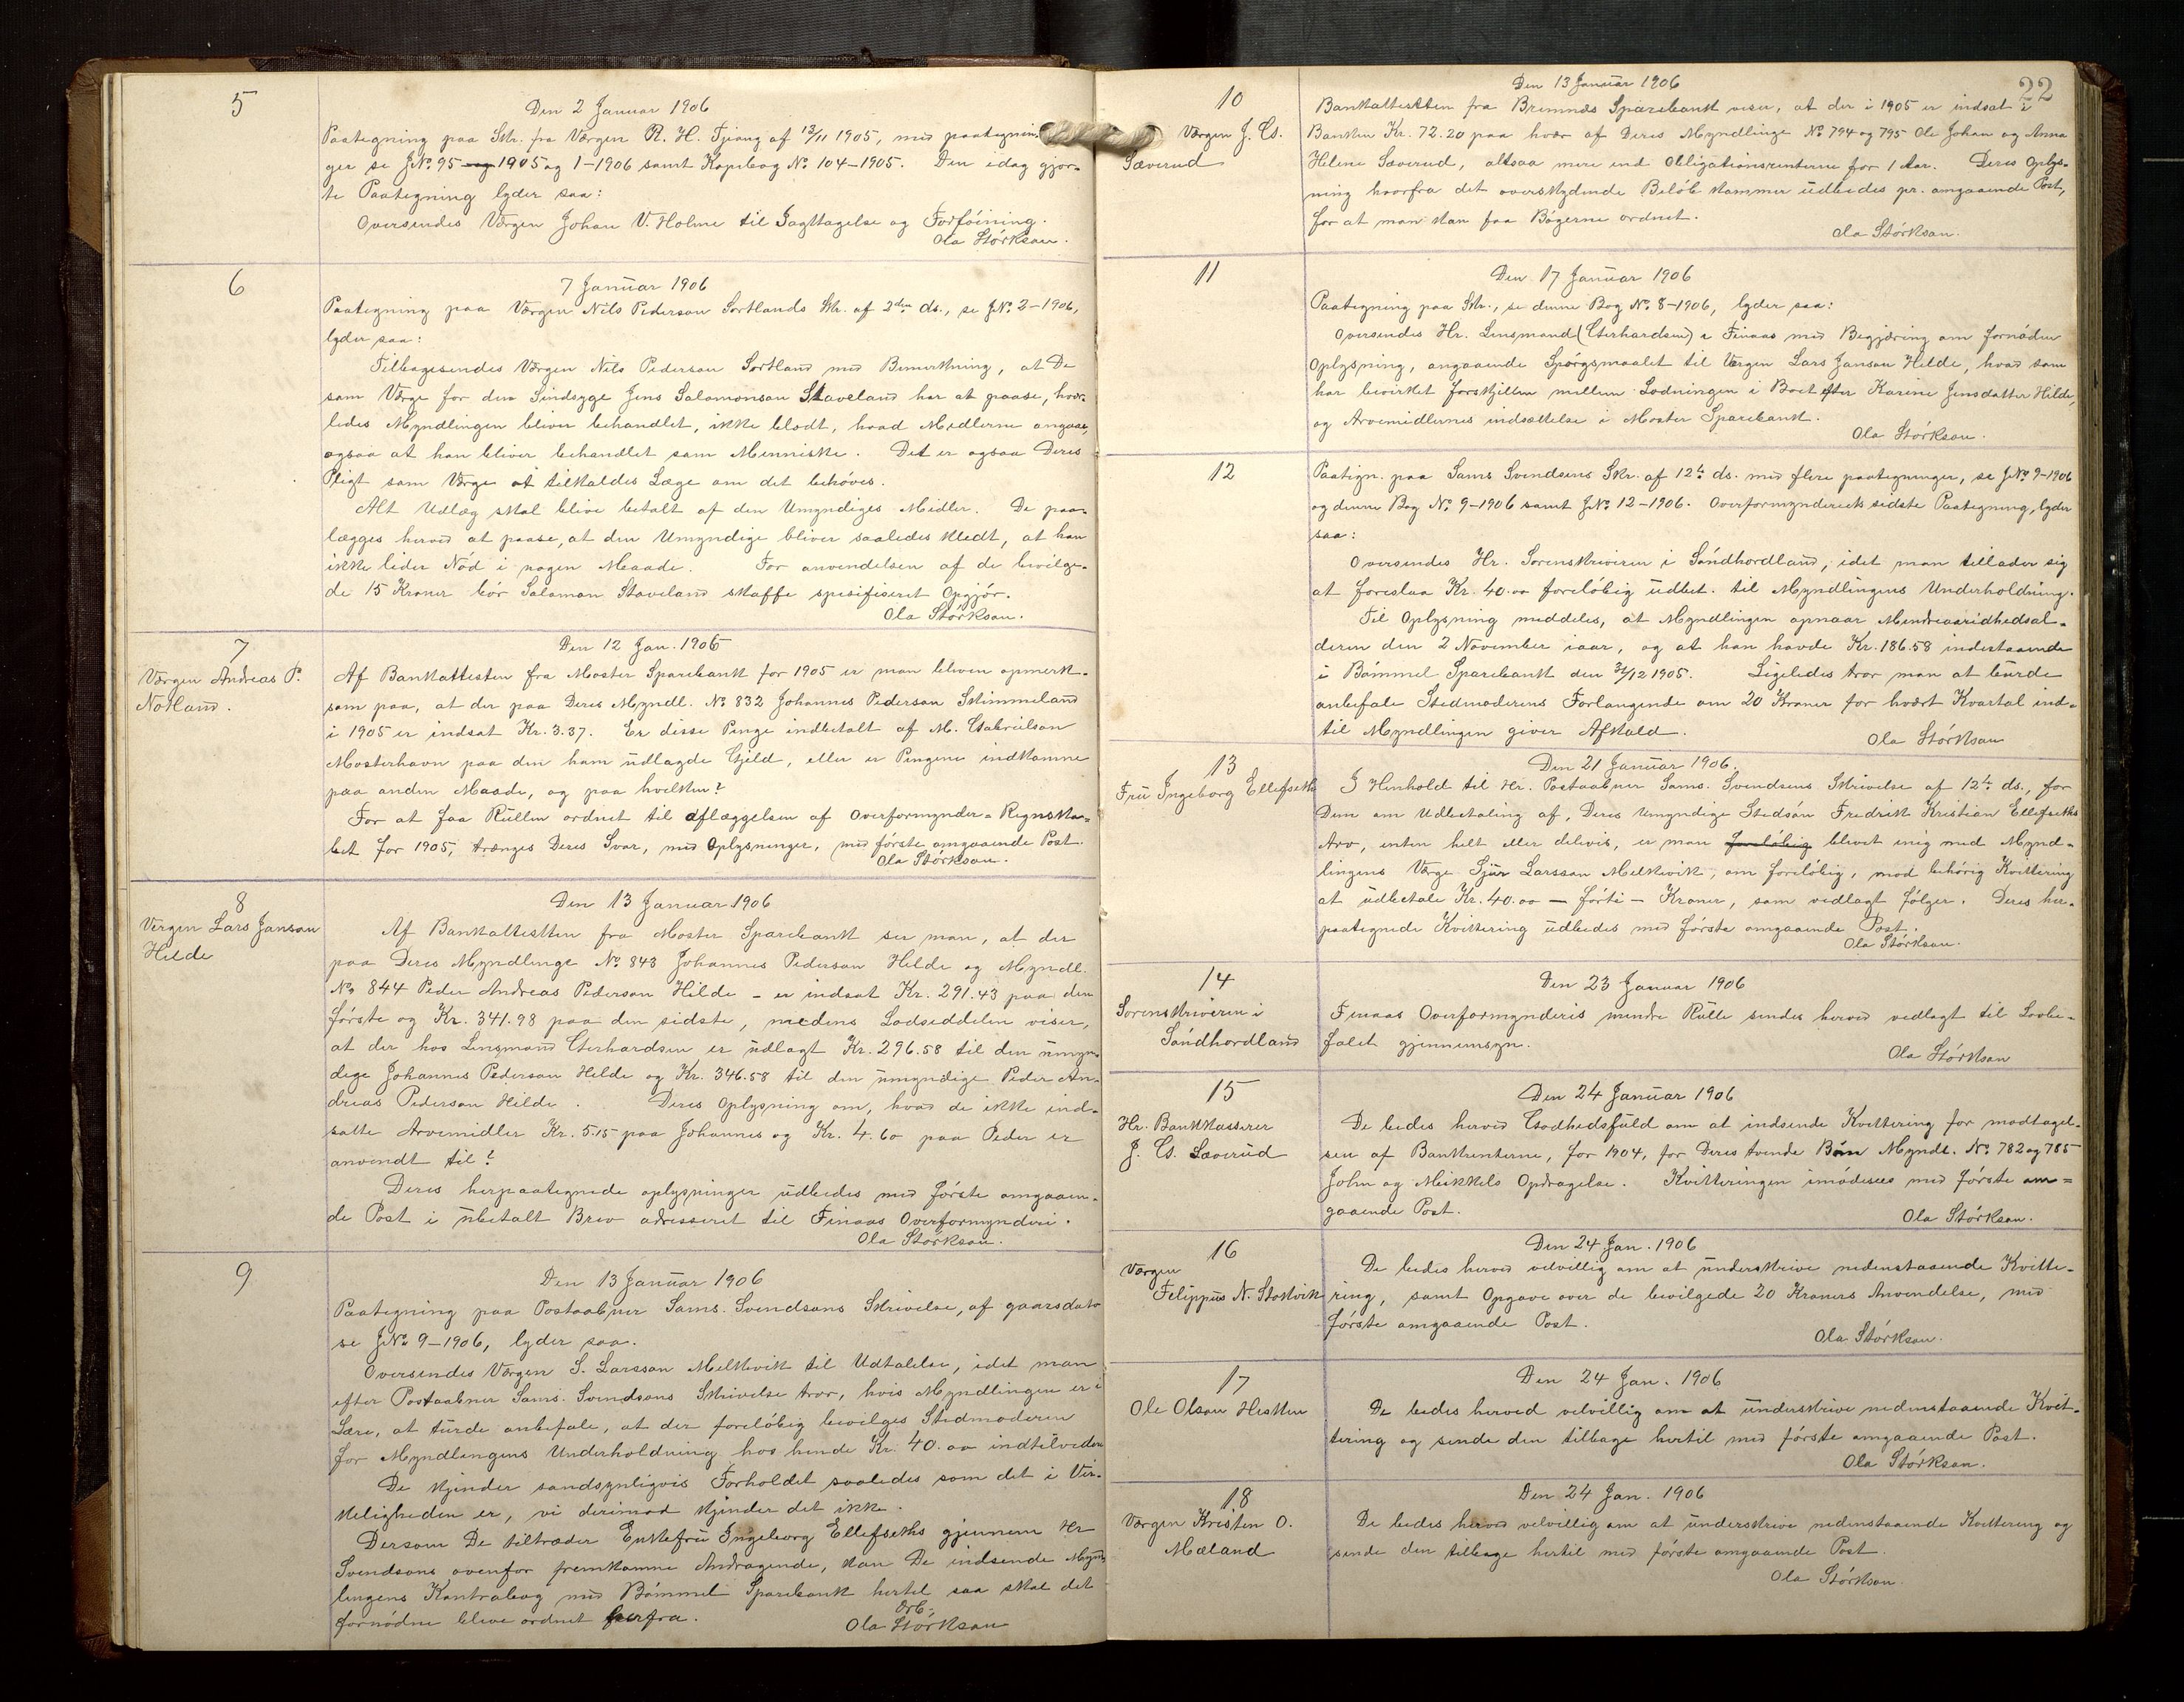 5
Den 2 Januar 1906
Paategning paa Skr. fra Værgen R. H. Tjeong af 13/11 1905, med paategnin-
ger se J№ 95 1905 og 1-1906 samt Kopibog № 104-1905. Den idag gjor-
te Paategning lyder saa:
Oversendes Værgen Johan V. Holme til Iagttagelse og Forføining.
Ola Størkson.
6
7 Januar 1906
Paategning paa Værgen Nils Pederson Sortlands Skr. af 2den ds., se J№ 2-1906,
lyder saa:
Tilbagesendes Værgen Nils Pederson Sortland med Bemerkning, at De
som Værge for den Sindsyge Jens Salomonson Staveland har at paase, hvor-
ledes Myndlingen bliver behandlet, ikke blodt, hvad Midlerne angaar,
ogsaa at han bliver behandlet som Menniske. Det er ogsaa Deres
Pligt som Værge at tilkaldes Læge om det behøves.
Alt Udlæg skal blive betalt af den Umyndiges Midler. De paa-
lægges herved at paase, at den Umyndige bliver saaledes kledt, at han
ikke lider Nød i nogen Maade. For anvendelsen af de bevilge-
de 15 Kroner bør Salamon Staveland skaffe spisifiseret Opgjør.
Ola Størkson.
7
Den 12 Jan. 1906
Værgen Andreas P.
Notland.
Af Bankattesten fra Moster Sparebank for 1905 er man bleven opmerk-
som paa, at der paa Deres Myndl. № 832 Johannes Pederson Skimmeland
i 1905 er indsat Kr. 3.37. Er disse Penge indbetalt af M. Gabrielson
Mosterhavn paa den ham udlagde Gjeld, eller er Pengene indkomne
paa anden Maade, og paa hvilken?
For at faa Rullen ordnet til Aflæggelsen af Overformynder-Regnska-
bet for 1905, trænges Deres Svar, med Oplysninger, med første omgaaende Post.
Ola Størkson.
8
Den 13 Januar 1906
Vergen Lars Janson
Hilde
Af Bankattestten fra Moster Sparebank ser man, at der
paa Deres Myndlinge № 843 Johannes Pederson Hilde og Myndl.
№ 844 Peder Andreas Pederson Hilde - er indsat Kr. 291.43 paa den
første og Kr. 341.98 paa den sidste, medens Lodseddelen viser,
at der hos Lensmand Gerhardsen er udlagt Kr. 296.58 til den umyn-
dige Johannes Pederson Hilde og Kr. 346.58 til den umyndige Peder An-
dreas Pederson Hilde. Deres Oplysning om, hvad de ikke ind-
satte Arvemidler Kr. 5.15 paa Johannes og Kr. 4.60 paa Peder er
anvendt til?
Deres herpaategnede oplysninger udbedes med første omgaaen-
de Post i ubetalt Brev adresseret til Finaas Overformynderi.
Ola Størkson.
9
Den 13 Januar 1906
Paategning paa Postaabner Sams. Svendsons Skrivelse, af gaarsdato
se J№ 9-1906, lyder saa.
Oversendes Værgen S. Larsson Melkevik til Udtalelse, idet man
efter Postaabner Sams. Svendsons Skrivelse tror, hvis Myndlingen er i
Lære, at turde anbefale, at der foreløbig bevilges Stedmoderen
for Myndlingens Underholdning hos hende Kr. 40.00 indtilvidere
De kjender sandsynligvis Forholdet saaledes som det i Vir-
keligheden er, vi derimod kjender det ikke.
Dersom De tiltræder Enkefru Ingeborg Ellefseths gjennem Hr
Svendsons ovenfor fremkomne Andragende, kan De indsende Mynd-
lingens Kontrabog med Bømmel Sparebank hertil saa skal det
fornødne blive ordnet herfra.
Ola Størkson
22
10
Den 13 Januar 1906
Værgen J. G.
Sæverud
Bankattestten fra Bremnæs Sparebank viser, at der i 1905 er indsat i
Banken Kr. 72.20 paa hver af Deres Myndlinge № 794 og 795 Ole Johan og Anna
Helene Sæverud, altsaa mere end Obligationsrenterne for 1 Aar. Deres Oplys-
ning hvorfra det overskydende Beløb stammer udbedes pr. omgaaende Post,
for at man kan faa Bøgerne ordnet.
Ola Størkson.
11
Den 17 Januar 1906
Paategning paa Skr., se denne Bog № 8-1906, lyder saa:
Oversendes Hr. Lensmand (Gerhardsen) i Finaas med Begjæring om fornøden
Oplysning, angaaende Spørgsmaalet til Værgen Lars Janson Hilde, hvad som
har bevirket forskjellen mellem Lodningen i Boet efter Karine Jensdatter Hilde,
og Arvemidlernes indsættelse i Moster Sparebank.
Ola Størkson.
12
Paategn. paa Sams Svendsens Skr. af 12te ds. med flere paategninger, se J№ 9-1906
og denne Bog № 9-1906 samt J№ 12-1906. Overformynderiets sidste Paategning, lyder
saa:
Oversendes Hr. Sorenskriveren i Søndhordland, idet man tillader sig
at foreslaa Kr. 40.00 foreløbig udbet. til Myndlingens Underholdning.
Til Oplysning meddeles, at Myndlingen opnaar Mindreaaridhedsal-
deren den 2 November iaar, og at han havde Kr. 186.58 indestaaende
i Bømmel Sparebank den 31/12 1905. Ligeledes tror man at burde
anbefale Stedmoderens Forlangende om 20 Kroner for hvert Kvartal ind-
til Myndlingen giver Afkald.
Ola Størkson
13
Den 21 Januar 1906.
Fru Ingeborg Ellefseth
I Henhold til Hr. Postaabner Sams. Svendsens Skrivelse af 12te ds., for
Dem om Udbetaling af, Deres Umyndige Stedsøn Fredrik Kristian Ellefseths
Arv, enten helt eller delvis, er man foreløbig blevet enig med Mynd-
lingens Værge Sjur Larsson Melkevik, om foreløbig, mod behørig Kvittering
at udbetale Kr. 40.00 — førti — Kroner, som vedlagt følger. Deres her-
paategnede Kvittering udbedes med første omgaaende Post.
Ola Størkson.
14
Den 23 Januar 1906
Sorenskriveren i
Søndhordland
Finaas Overformynderis mindre Rulle sendes herved vedlagt til Lovbe-
falet gjennemsyn.
Ola Størkson
15
Den 24 Januar 1906
Hr. Bankkasserer
J. G. Sæverud
De bedes herved Godhedsfuld om at indsende Kvittering for modtagel-
sen af Bankrenterne, for 1904, for Deres tvende Børn Myndl. № 782 og 785
John og Mikkels Opdragelse. Kvitteringen imødesees med første om-
gaaende Post.
Ola Størkson.
16
Den 24 Jan. 1906
Værgen
Filippus N. Stokvik
De bedes herved velvillig om at underskrive nedenstaaende Kvitte-
ring, samt Opgave over de bevilgede 20 Kroners Anvendelse, med
første omgaaende Post.
Ola Størkson.
17
Den 24 Jan. 1906
Ole Olson Hesken
De bedes herved velvillig om at underskrive nedenstaaende Kvit-
tering og sende den tilbage hertil med første omgaaende Post.
Ola Størkson.
18
Den 24 Jan. 1906
Værgen Kristen O.
Mæland
De bedes herved velvillig om at underskrive nedenstaaende Kvittering og
sende den tilbage hertil med første omgaaende Post.
Ola Størkson.